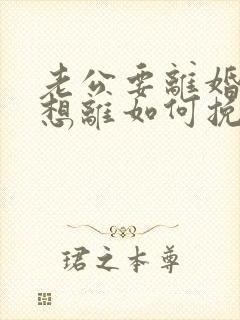 老公要離婚
想離如何挽
珺之本尊